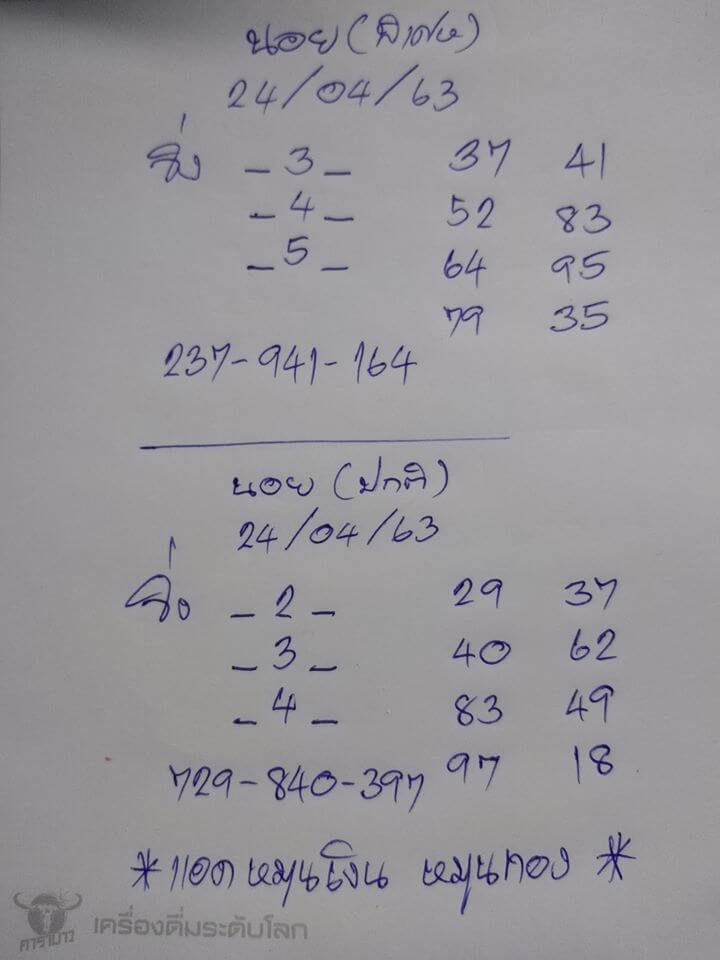 นอย (พิเศษ)
24/04/63
วิ่ง -3- 37 41
-4- 52 83
-5- 64 95
79 35
237-941-164
นอย (ปกติ)
24/04/63
วิ่ง -2- 29 37
-3- 40 62
-4- 83 49
97 18
729-840-397
*แอด หมุนเงิน หมุนทอง*
คาราบาว เครื่องดื่มระดับโลก